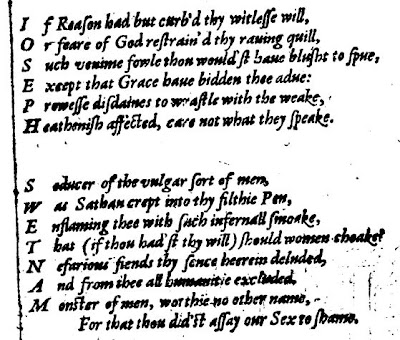 I f Reaſon had but curb'd thy witleſſe will,
O r feare of God reſtrain'd thy rauing quill,
S uch venime fowle thou would'ſt haue bluſht to ſpue,
E xcept that Grace haue bidden thee adue:
P roweſſe diſdaines to wraſtle with the weake,
H eatheniſh affected, care not what they ſpeake.

S educer of the vulgar ſort of men,
W as Sathan crept into thy filthie Pen,
E nflaming thee with ſuch infernall ſmoake,
T hat (if thou had'ſt thy will) ſhould women choake?
N efarious fiends thy ſence heerein deluded,
A nd from thee all humanitie excluded,
M onſter of men, worthie no other name,
For that thou did'ſt aſſay our Sex to ſhame.